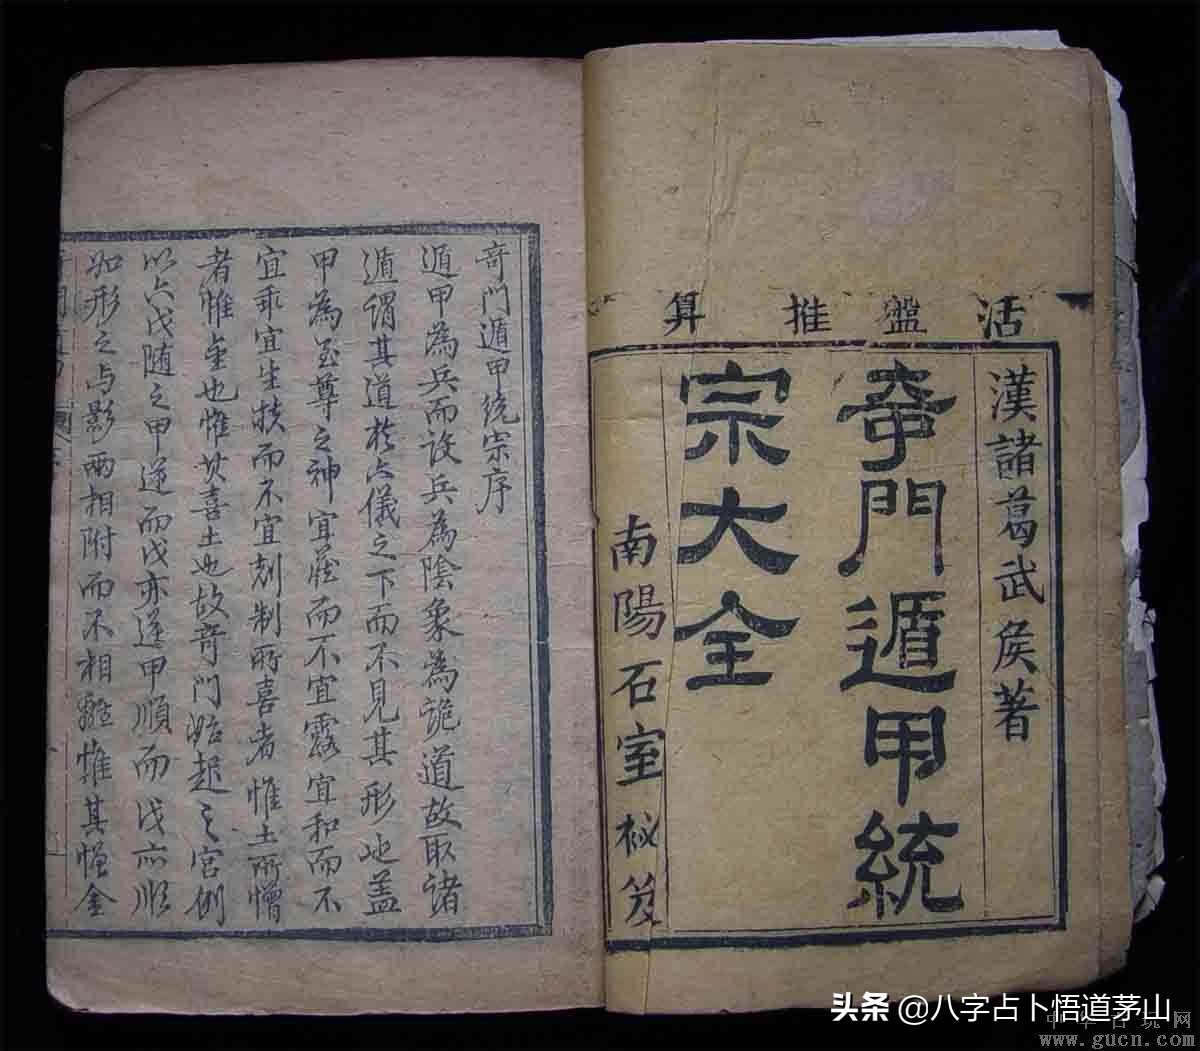 活盤推算
漢諸葛武侯著
奇門遁甲統
宗大全
南陽石室秘笈
奇門遁甲统宗序
遁甲為兵而設兵為陰象為詭道故取諸
遁謂其道於六儀之下而不見其形也盖
甲為至尊之神宜藏而不宜露宜和而不
宜乖宜生扶而不宜剋制所喜者惟土所憎
者惟金也惟其喜土也故奇門始起之宮例
以六戊随之甲逆而戊亦逆甲順而戊亦順
如形之与影两相附而不相離惟其憎金
头条 @八字占卜悟道茅山
中华古玩网
www.gucn.com